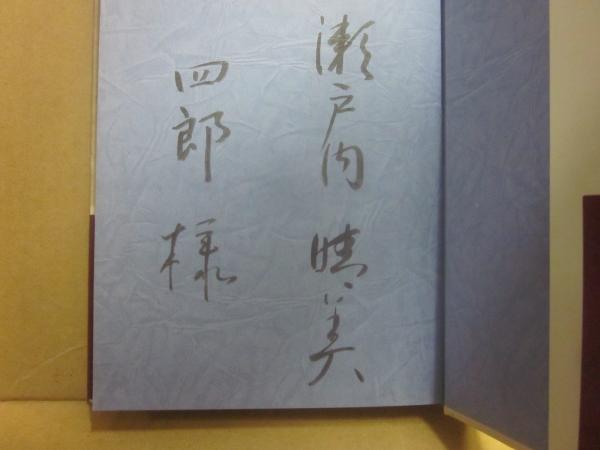 瀬戸内 晴美
四郎 様